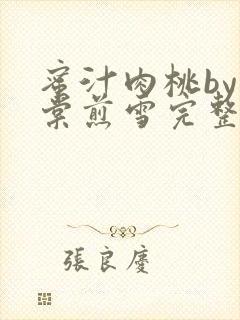 蜜汁肉桃by
棠煎雪完整
張良慶